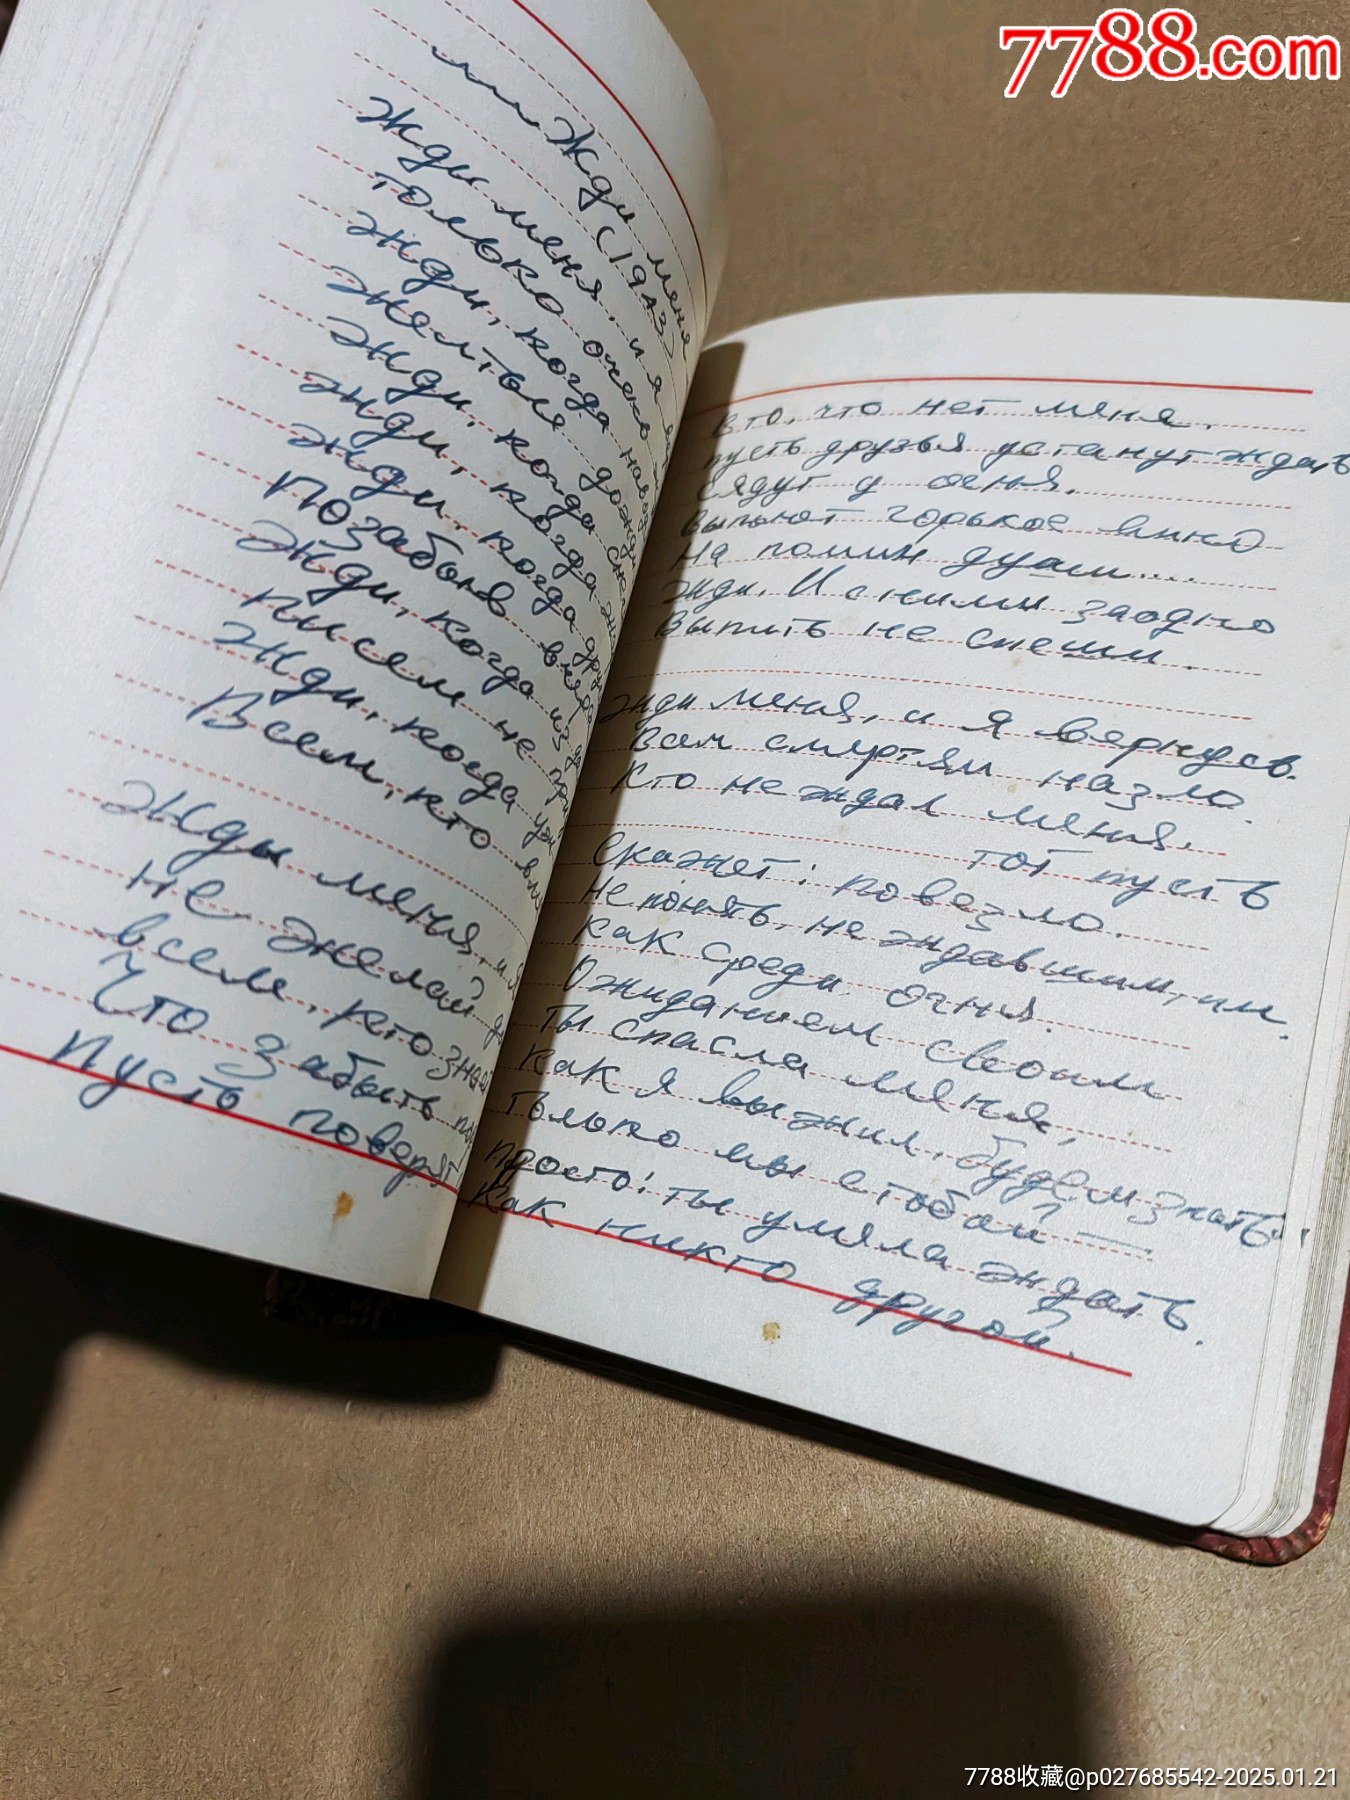 7788.com
Жди меня
(1943)
Жди меня, и я
только очень
жди, когда наво
желтые дожди
жди, когда сне
жди, когда
жди, когда дру
Позабыв вчера
жди, когда из да
писем не при
жди, когда уж
Всем, кто вм
Жди меня, и я
не желай до
всем, кто знае
Что забыть по
Пусть поверят
в то, что нет меня.
пусть друзья устанут ждать
сядут у огня.
выпьют горькое вино
на помин души...
жди. И с ними заодно
Выпить не спеши.
жди меня, и я вернусь.
всем смертям назло.
Кто не ждал меня,
тот пусть
Скажет: повезло.
не понять, не ждавшим, им.
как среди огня.
Ожиданием своим
Ты спасла меня,
как я выжил, будем знать
Только мы с тобой —
просто: ты умела ждать.
Как никто другой.
7788收藏@p027685542-2025.01.21